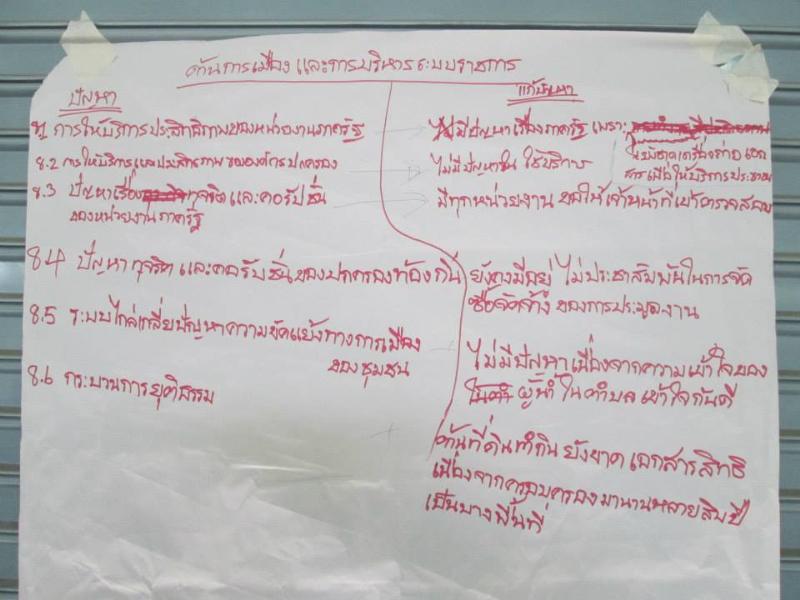 ด้านการเมือง และการบริหารระบบราชการ
ปัญหา
การให้บริการประสิทธิภาพของหน่วยงานภาครัฐ
8.2 การให้บริการและประสิทธิภาพขององค์กรปกครอง
8.3 ปัญหาเรื่อง ทุจริต และคอรัปชั่น
ของหน่วยงานภาครัฐ
8.4 ปัญหาทุจริต และคอรับชั่นของปกครองท้องถิ่น
8.5 ระบบไกล่เกลี่ยปัญหาความขัดแย้งทางการเมือง
ของชุมชน
8.6 กระบวนการยุติธรรม
แก้ปัญหา
ไม่มีปัญหาเรื่องภาครัฐ เพราะ
เครื่องถ่ายเอก
สารเพื่อให้บริการประชาชน
ไม่มีปัญหาใน ใช้บริการ
มีทุกหน่วยงาน ขอให้เจ้าหน้าที่เข้าตรวจสอบ
ยังคงมีอยู่ ไม่ประชาสัมพันธ์ในการจัด
ซื้อจัดจ้าง ของการประมูลงาน
ไม่มีปัญหาเนื่องจากความเข้าใจของ
ผู้นำ ในตำบล เข้าใจกันดี
ที่ดินทำกิน ยังขาด เอกสารสิทธิ
เนื่องจากครอบครองมานานหลายสิบปี
เป็นบางพื้นที่